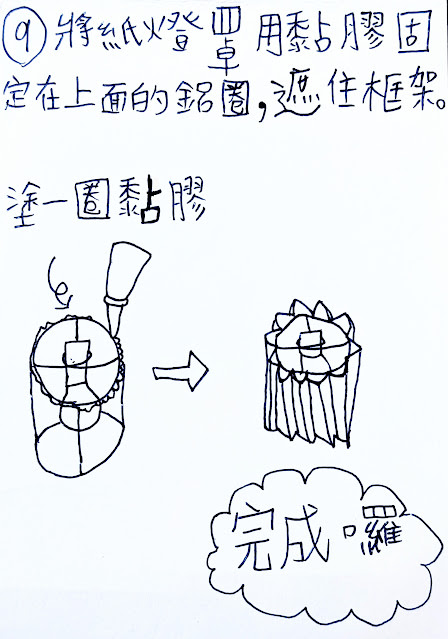 ⑨將紙燈罩用黏膠固
定在上面的鋁圈,遮住框架。
塗一圈黏膠
完成囉